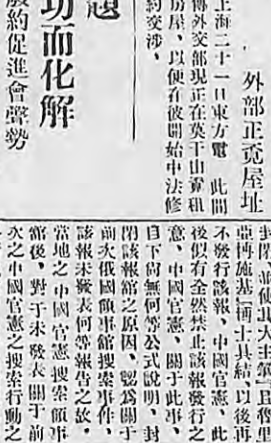 外部正覓屋址
上海二十一日東方電　此間
傳外交部現正在莫干山賃租
房屋、以便在彼開始中法修
約交涉、
題
功而化解
廢約促進會聲勢
不發行該報、中國官憲、此
後似有全然禁止該報發行之
意、中國官憲、關于此事、
目下尙無何等公式說明、封
閉該報館之原因、認爲關于
前次俄國領事館搜索事件、
該報未發表何等報告之故、
當地之中國官憲搜索領事
館後、對于未發表關于前
次之中國官憲之搜索行動之